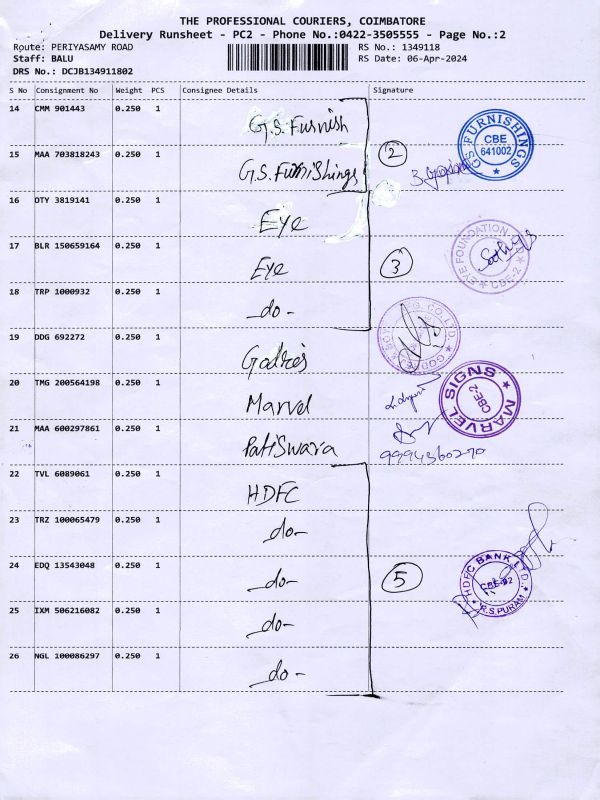 THE PROFESSIONAL COURIERS, COIMBATORE
Delivery Runsheet - PC2 - Phone No.:0422-3505555 - Page No.:2
Route: PERIYASAMY ROAD RS No.: 1349118
Staff: BALU RS Date: 06-Apr-2024
DRS No.: DCJB134911802
S No Consignment No Weight PCS Consignee Details Signature
14 CMM 901443 0.250 1 G.S. Furnish
15 MAA 703818243 0.250 1 G.S. Furnishings
2
GS FURNISHINGS CBE 641002
16 OTY 3819141 0.250 1 Eye
17 BLR 150659164 0.250 1 Eye
3
EYE FOUNDATION CBE-2
18 TRP 1000932 0.250 1 -do-
19 DDG 692272 0.250 1 Godrej
20 TMG 200564198 0.250 1 Marvel
MARVEL SIGNS CBE-2
21 MAA 600297861 0.250 1 Patiswara
9994360270
22 TVL 6089061 0.250 1 HDFC
23 TRZ 100065479 0.250 1 -do-
24 EDQ 13543048 0.250 1 -do-
5
HDFC BANK LTD., CBE-02 R.S.PURAM
25 IXM 506216082 0.250 1 -do-
26 NGL 100086297 0.250 1 -do-